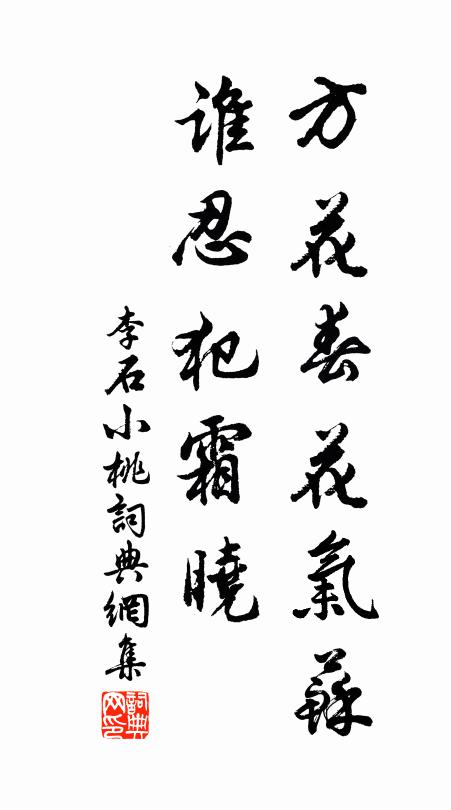 方花春花氣蘇
誰忍犯霜曉
李石小桃詞典網集
詞典网印